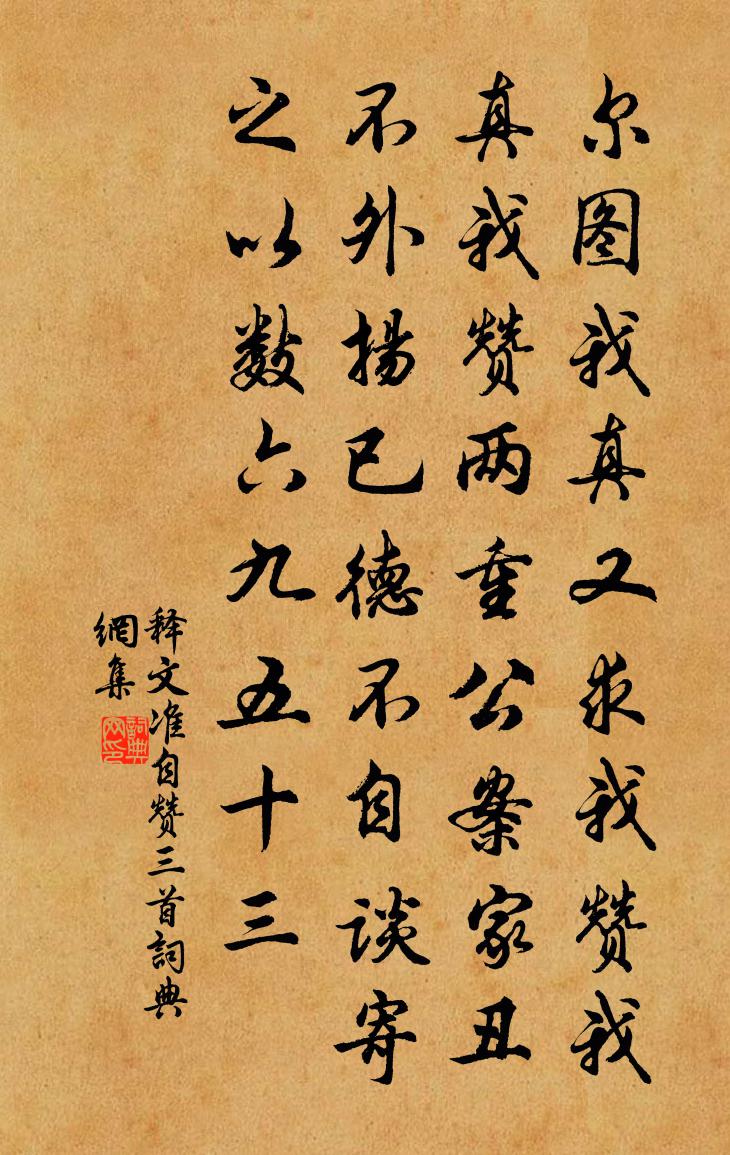 尔图我真又求我赞我
真我赞两重公案家丑
不外揚已德不自谈寄
之以数六九五十三
释文准自赞三首詞典
網集
詞典网印